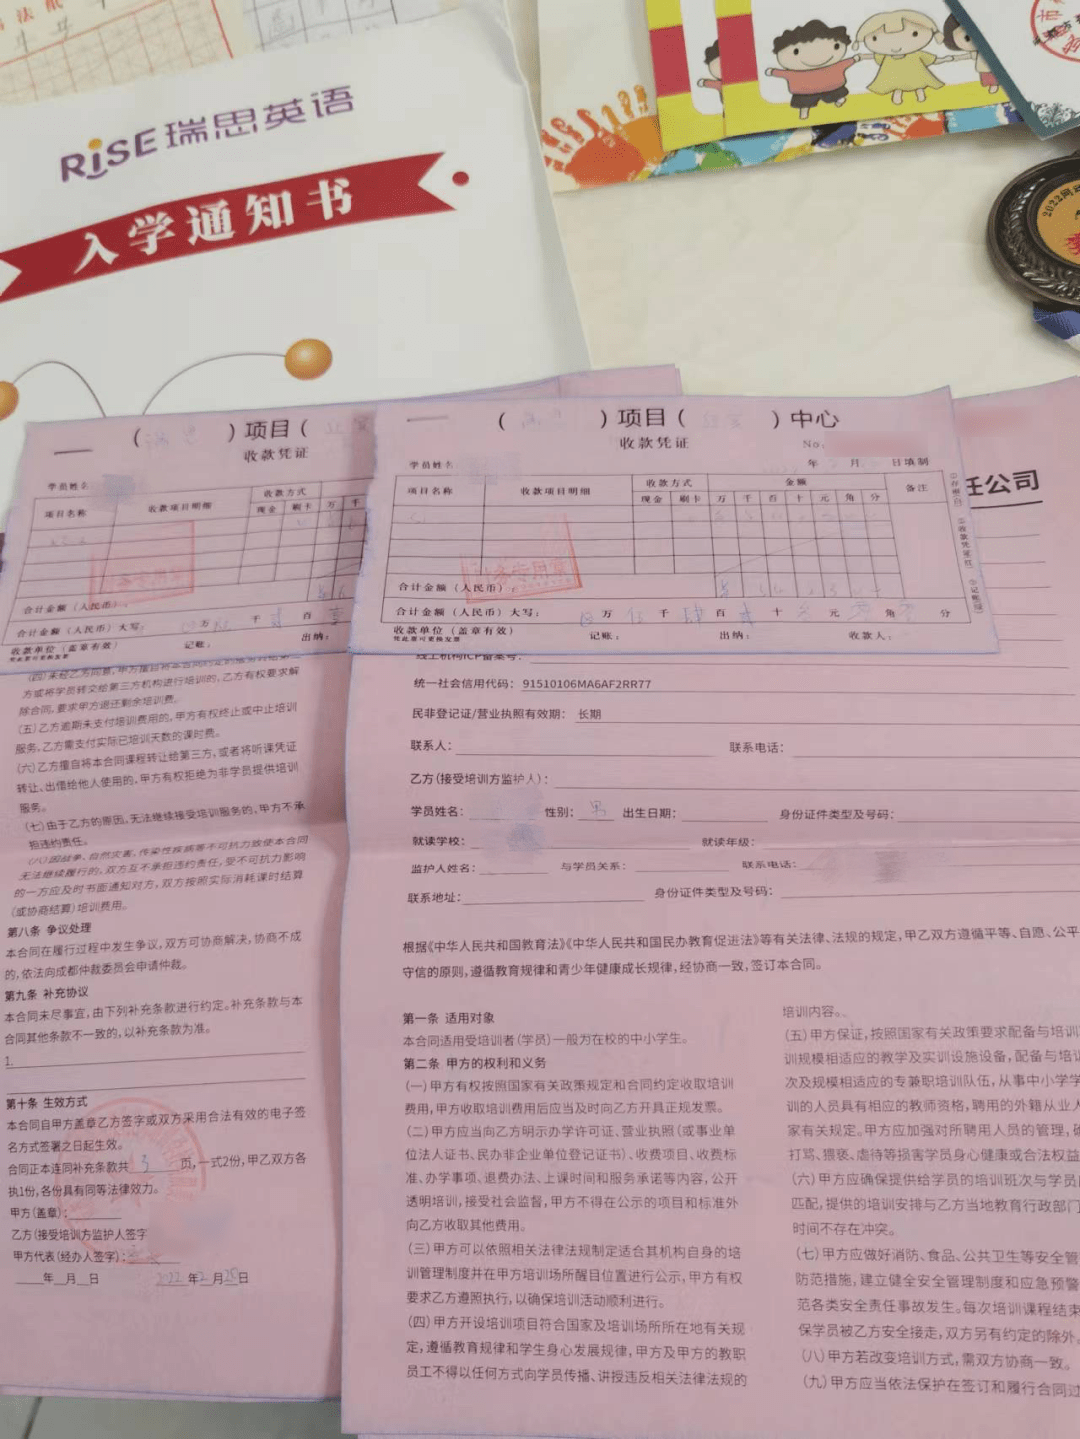 RISE瑞思英语
入学通知书
2022
( 瑞思 )项目(
收款凭证
学员姓名
项目名称 收款项目明细 收款方式
现金 刷卡 万 千
合计金额（人民币）：
合计金额（人民币）大写： 万 千 百
收款单位（盖章有效） 记账： 出纳：
凭此票可更换发票
( 瑞思 )项目( )中心
收款凭证
No.
学员姓名 年 月 日填制
项目名称 收款项目明细 收款方式 金额 备注
现金 刷卡 万 千 百 十 元 角 分
合计金额（人民币）：
合计金额（人民币）大写： 万 千 百 十 元 角 分
收款单位（盖章有效） 记账： 出纳： 收款人：
凭此票可更换发票
务专用章
任公司
方或将学员转交给第三方机构进行培训的,乙方有权要求解
除合同,要求甲方退还剩余培训费。
(五)乙方逾期未支付培训费用的,甲方有权终止或中止培训
服务,乙方需支付实际已培训天数的课时费。
(六)乙方擅自将本合同课程转让给第三方,或者将听课凭证
转让、出借给他人使用的,甲方有权拒绝为非学员提供培训
服务。
(七)由于乙方的原因,无法继续接受培训服务的,甲方不承
担违约责任。
(八)因战争、自然灾害,传染性疾病等不可抗力致使本合同
无法继续履行的,双方互不承担违约责任,受不可抗力影响
的一方应及时书面通知对方,双方按照实际消耗课时结算
(或协商结算)培训费用。
第八条 争议处理
本合同在履行过程中发生争议,双方可协商解决,协商不成
的,依法向成都仲裁委员会申请仲裁。
第九条 补充协议
本合同未尽事宜,由下列补充条款进行约定。补充条款与本
合同其他条款不一致的,以补充条款为准。
1.
第十条 生效方式
本合同自甲方盖章乙方签字或双方采用合法有效的电子签
名方式签署之日起生效。
合同正本连同补充条款共 3 页,一式2份,甲乙双方各
执1份,各份具有同等法律效力。
甲方(盖章):
乙方(接受培训方监护人签字
甲方代表(经办人签字):
年 月 日 2022年2月20日
线上机构ICP备案号:
统一社会信用代码: 91510106MA6AF2RR77
民非登记证/营业执照有效期: 长期
联系人: 联系电话:
乙方(接受培训方监护人):
学员姓名: 性别: 男 出生日期: 身份证件类型及号码:
就读学校: 就读年级:
监护人姓名: 与学员关系: 联系电话:
联系地址: 身份证件类型及号码:
根据《中华人民共和国教育法》《中华人民共和国民办教育促进法》等有关法律、法规的规定,甲乙双方遵循平等、自愿、公平
守信的原则,遵循教育规律和青少年健康成长规律,经协商一致,签订本合同。
第一条 适用对象
本合同适用受培训者(学员)一般为在校的中小学生。
第二条 甲方的权利和义务
(一)甲方有权按照国家有关政策规定和合同约定收取培训
费用,甲方收取培训费用后应当及时向乙方开具正规发票。
(二)甲方应当向乙方明示办学许可证、营业执照(或事业单
位法人证书、民办非企业单位登记证书)、收费项目、收费标
准、办学事项、退费办法、上课时间和服务承诺等内容,公开
透明培训,接受社会监督,甲方不得在公示的项目和标准外
向乙方收取其他费用。
(三)甲方可以依照相关法律法规制定适合其机构自身的培
训管理制度并在甲方培训场所醒目位置进行公示,甲方有权
要求乙方遵照执行,以确保培训活动顺利进行。
(四)甲方开设培训项目符合国家及培训场所所在地有关规
定,遵循教育规律和学生身心发展规律,甲方及甲方的教职
员工不得以任何方式向学员传播、讲授违反相关法律法规的
培训内容。
(五)甲方保证,按照国家有关政策要求配备与培训
训规模相适应的教学及实训设施设备,配备与培训
次及规模相适应的专兼职培训队伍,从事中小学学
训的人员具有相应的教师资格,聘用的外籍从业人
家有关规定。甲方应加强对所聘用人员的管理,确
打骂、猥亵、虐待等损害学员身心健康或合法权益
(六)甲方应确保提供给学员的培训班次与学员
匹配,提供的培训安排与乙方当地教育行政部门
时间不存在冲突。
(七)甲方应做好消防、食品、公共卫生等安全管
防范措施,建立健全安全管理制度和应急预警
范各类安全责任事故发生。每次培训课程结束
保学员被乙方安全接走,双方另有约定的除外。
(八)甲方若改变培训方式,需双方协商一致。
(九)甲方应当依法保护在签订和履行合同过